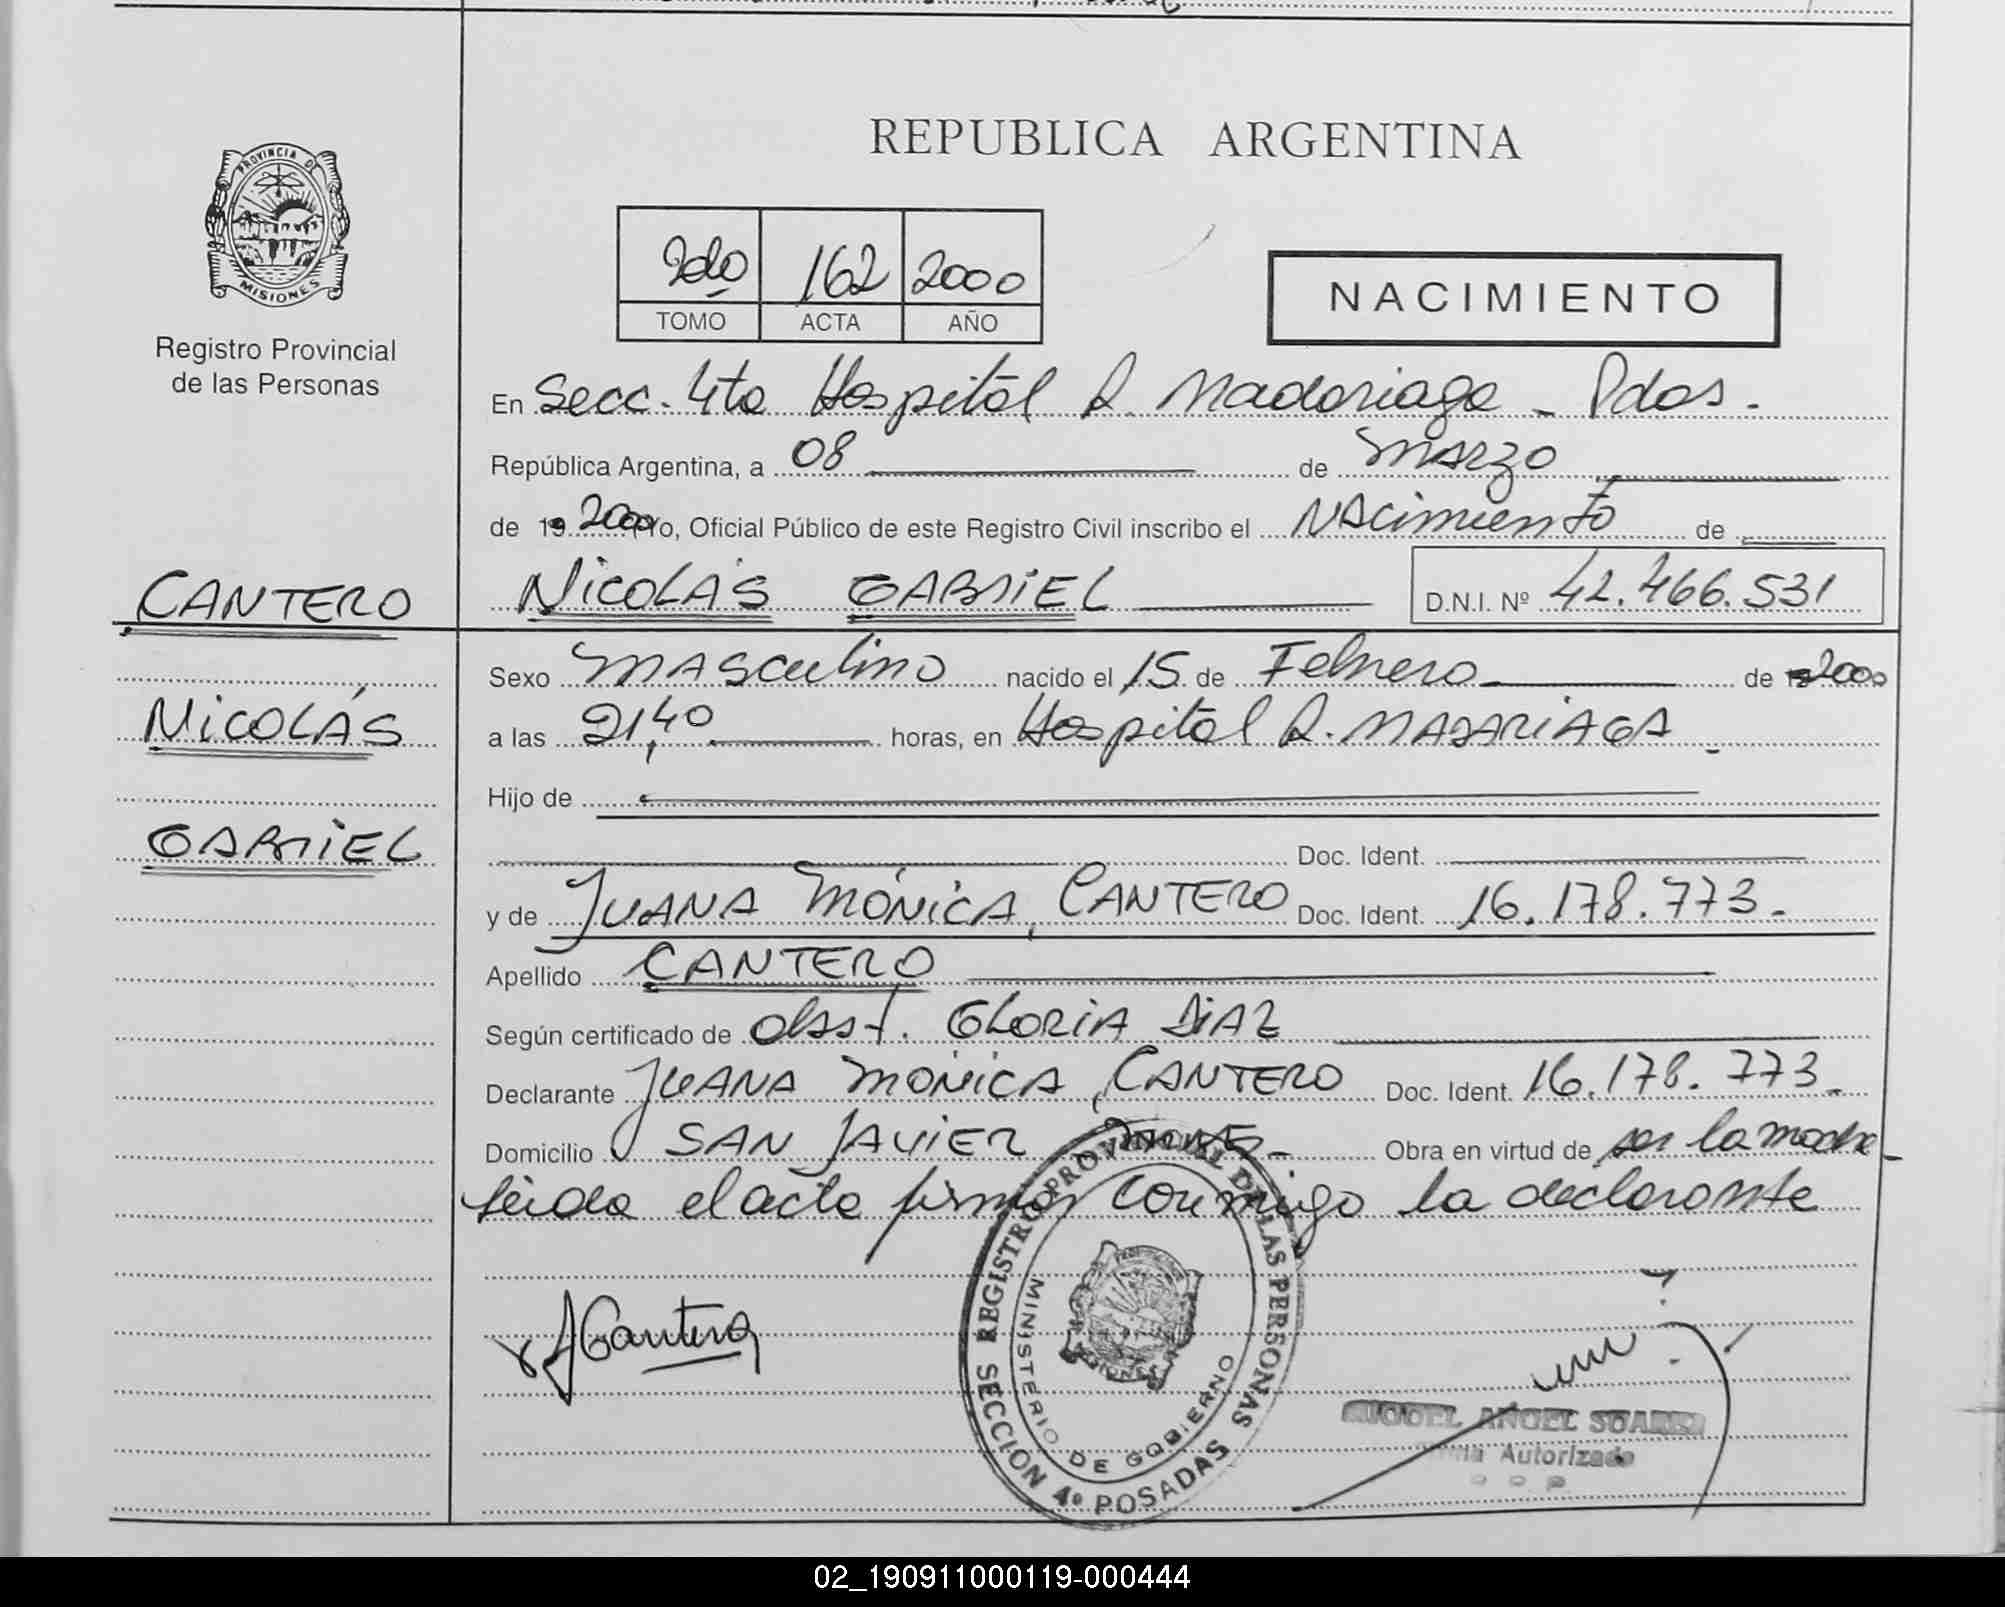 REPUBLICA ARGENTINA
PROVINCIA DE
MISIONES
Registro Provincial
de las Personas
2do 162 2000
TOMO ACTA AÑO
NACIMIENTO
En Secc. 4ta Hospital R. Madariaga - Pdas.
República Argentina, a 08 de MARZO
de 19 2000 Yo, Oficial Público de este Registro Civil inscribo el NACimiento de
CANTERO
NICOLÁS GABRIEL
D.N.I. Nº 42.466.531
Sexo MASCulino nacido el 15 de Febrero de 2000
NICOLÁS
a las 21,40 horas, en Hospital R. MADARIAGA
Hijo de
GABRIEL
Doc. Ident.
y de JUANA MÓNICA, CANTERO Doc. Ident. 16.178.773.
Apellido CANTERO
Según certificado de obst. GLORIA DIAZ
Declarante JUANA MÓNICA, CANTERO Doc. Ident. 16.178.773.
Domicilio SAN JAVIER Obra en virtud de ser la madre
leida el acta firma conmigo la declarante
JCantero
REGISTRO PROVINCIAL DE LAS PERSONAS
MINISTERIO DE GOBIERNO
SECCION 4º POSADAS
MIGUEL ANGEL SUAREZ
Autorizada
02_190911000119-000444